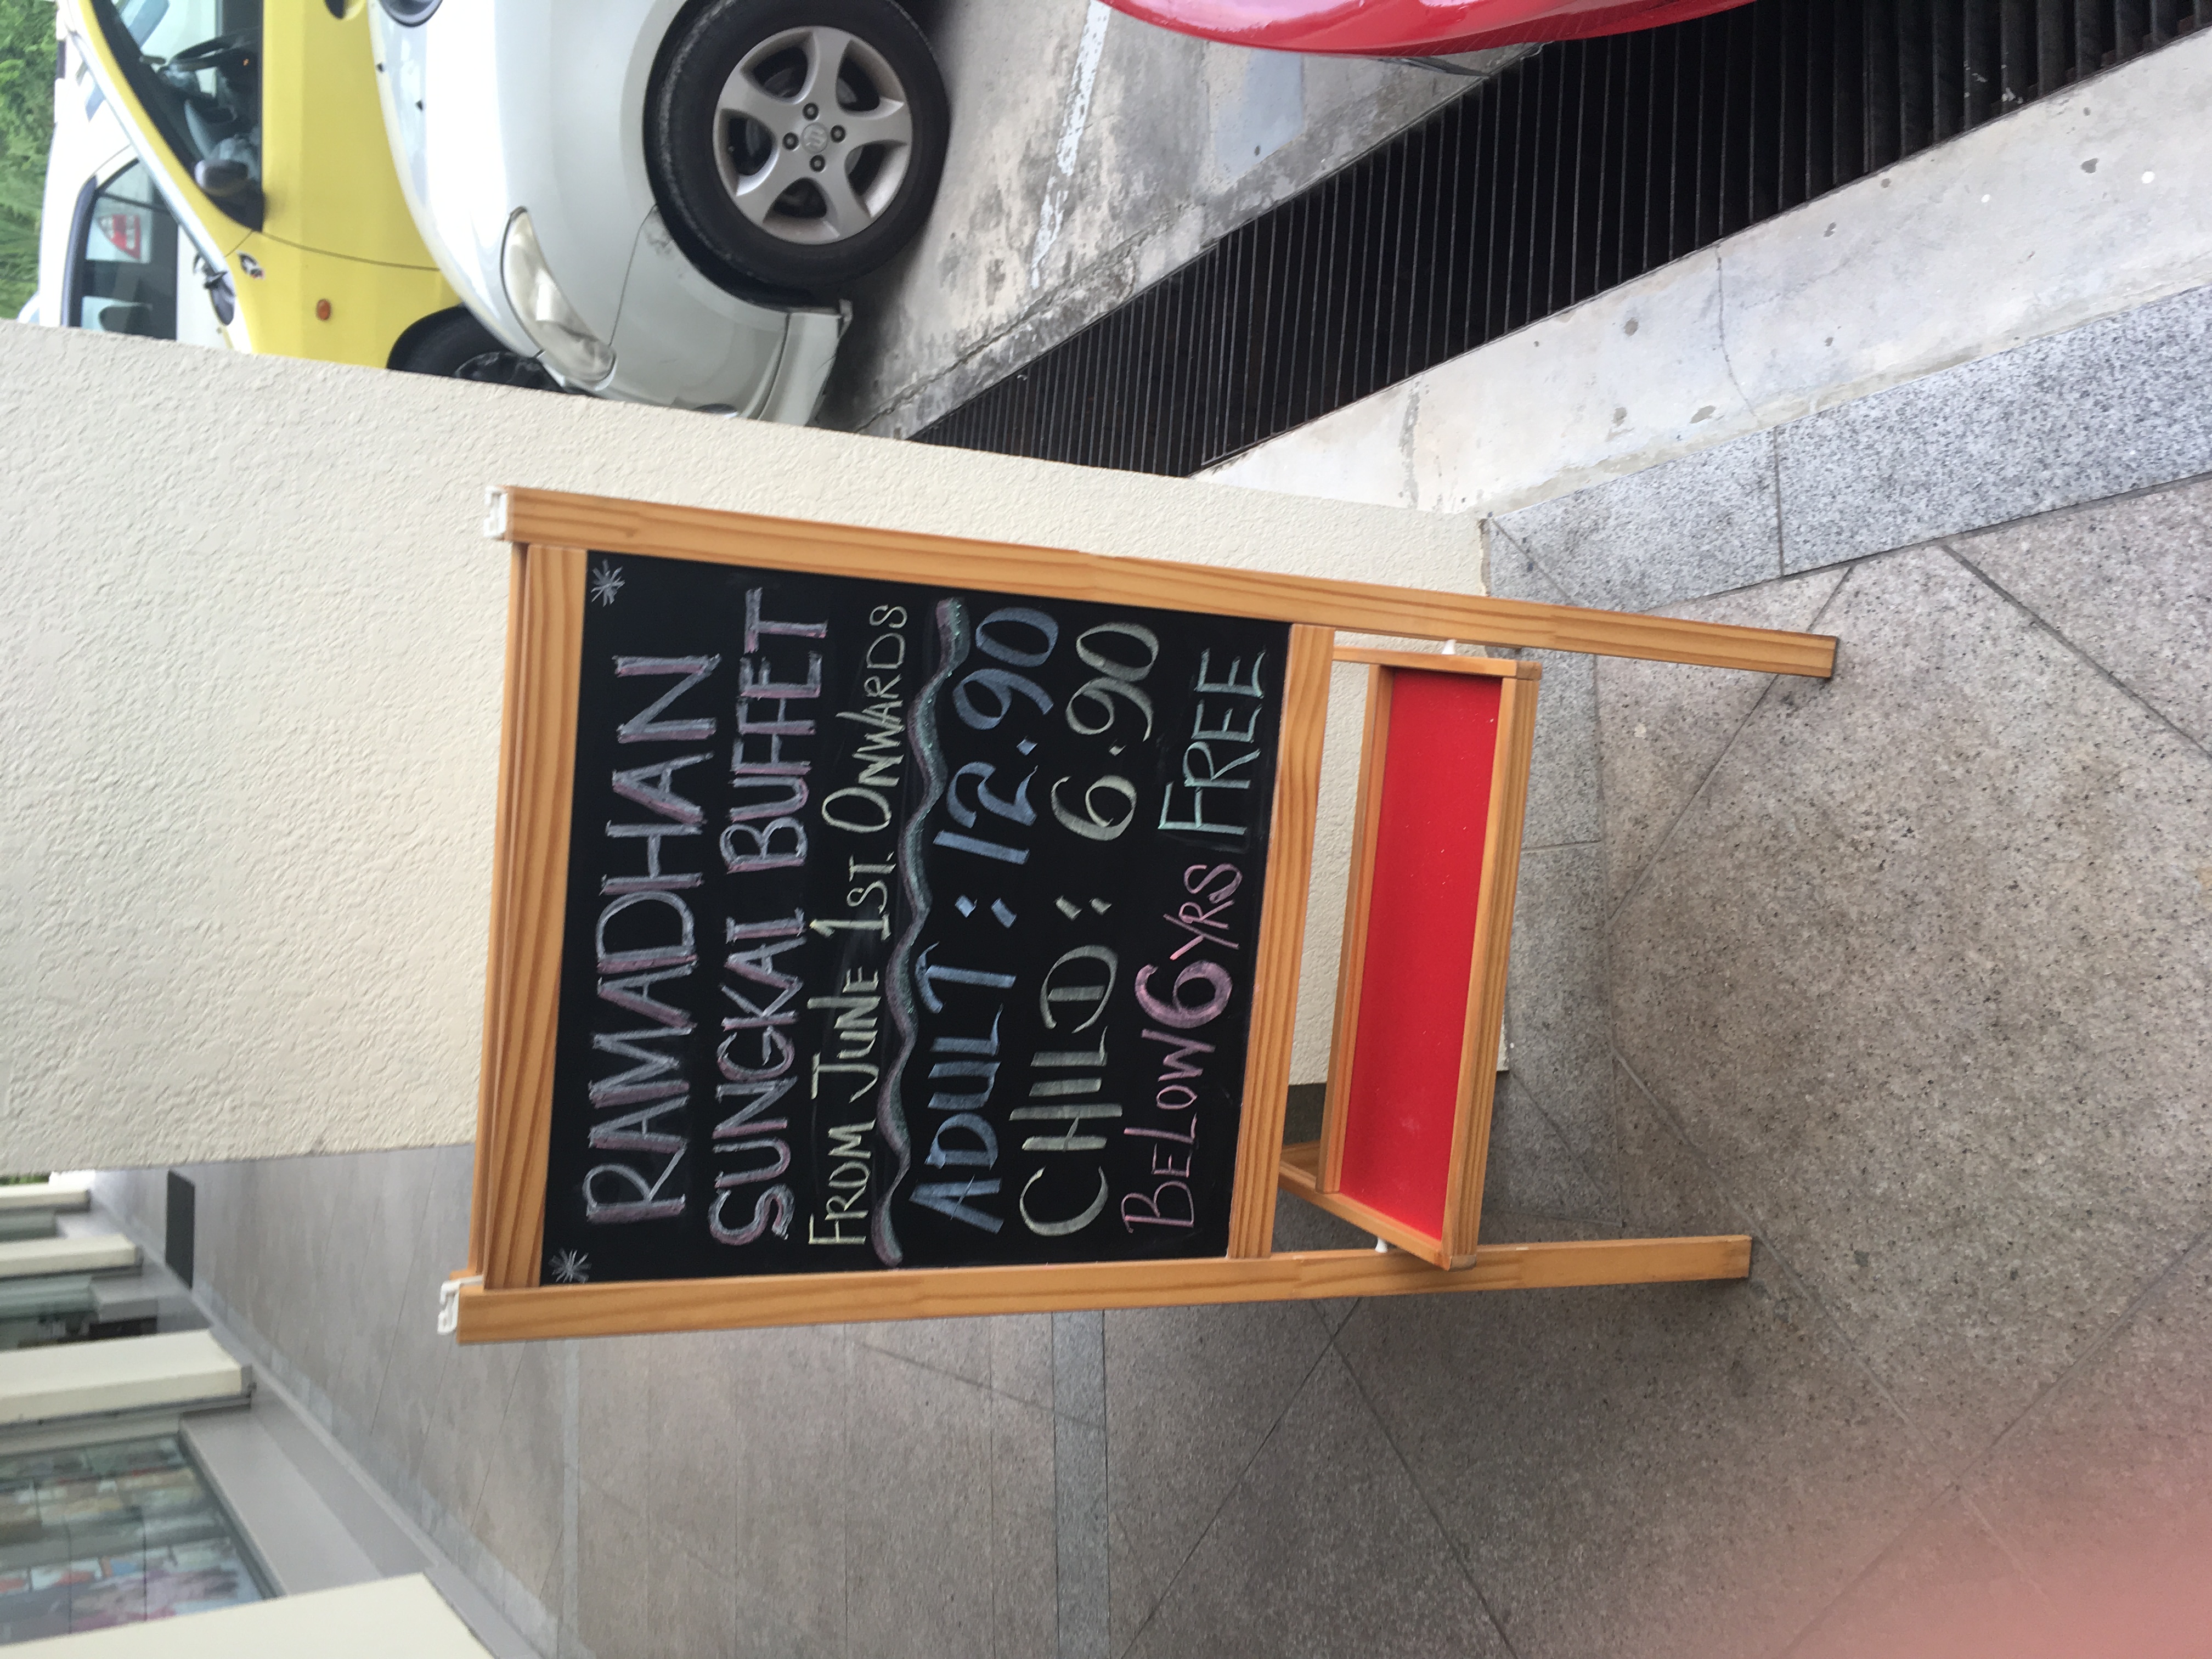 RAMADHAN
SUNGKAI BUFFET
FROM JUNE 1ST. ONWARDS
ADULT : 12.90
CHILD : 6.90
BELOW 6 YRS FREE